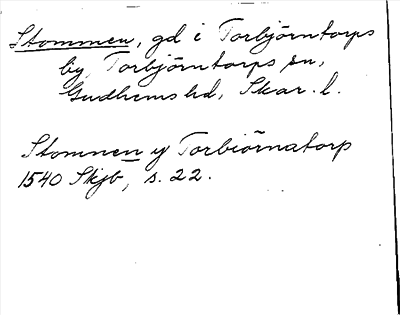 Stommen, gd i Torbjörntorps
by, Torbjörntorps sn,
Gudhems hd, Skar. l.
Stomnen y Torbiörnatorp
1540 Skjb, s. 22.